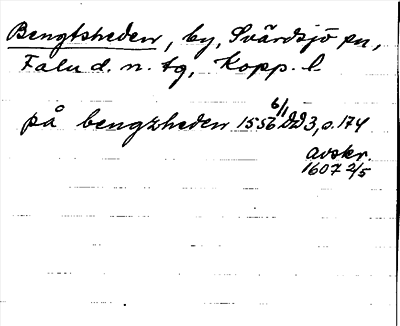 Bengtsheden, by, Svärdsjö sn,
Falu d. n. tg, Kopp. l
på bengzheden 1556 6/1 DD3, s. 174
avskr.
1607 2/5